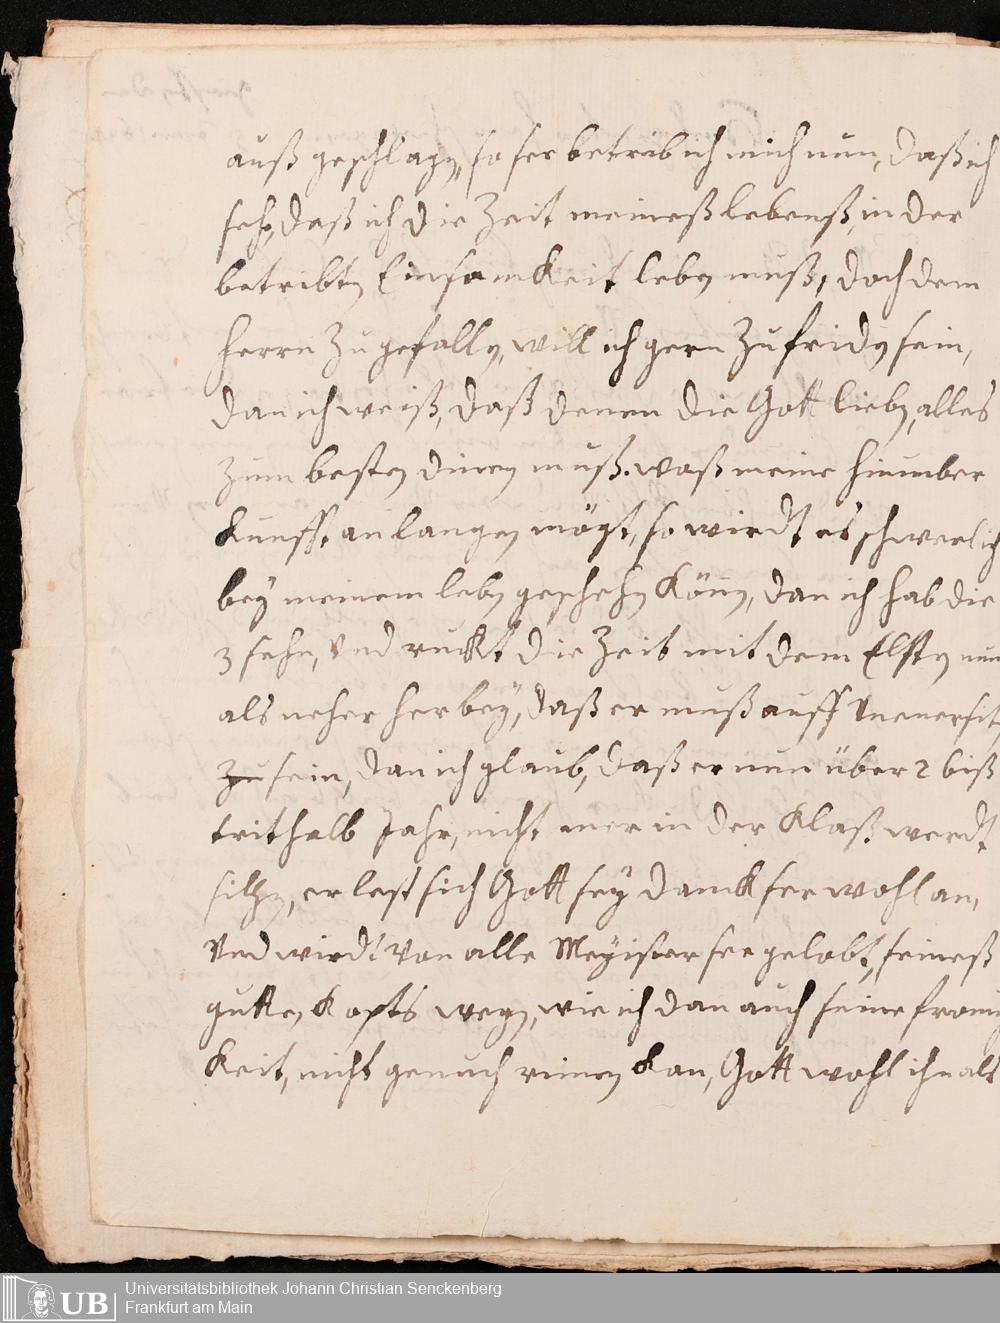 auß geschlagen, so ser betrieb ich mich nun, daß ich
seh, daß ich die Zeit meineß lebenß, in der
betribten Einsamkeit leben muß, doch dem
herrn zu gefallen, will ich gern zu friden sein,
dan ich weiß, daß denen die Gott lieben, alles
zum besten dinen muß. waß meine hinnber
kunfft an langen mögt, so wirdt es schwerlich
bey meinem leben geschehen könn, dan ich hab die
3 sehn, Und ruckt die Zeit mit dem Elsten nun
als neher her bey, daß er muß auff
zu sein, dan ich glaub, daß er nun über 2 biß
trithalb Jahr, nicht mer in der Klaß werdt
sitzen, er lest sich Gott sey danck ser wohl an,
Und wirdt Von alle Meyister ser gelobt, seineß
gutten kopfs wegen, wie ich dan auch seine fromig
keit, nicht genuch rimen kan, Gott wohl ihn als
Universitätsbibliothek Johann Christian Senckenberg
Frankfurt am Main
UB